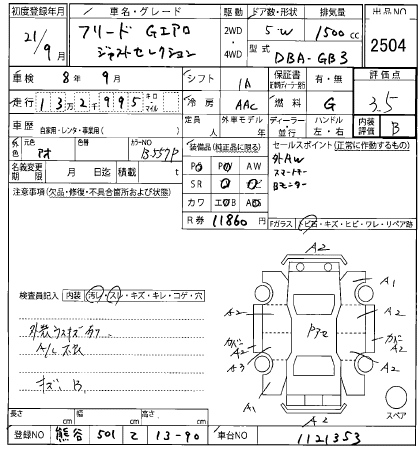 初度登録年月 車名・グレード 駆動 ドア数・形状 排気量 出品NO
21/9月 フリード Gエアロ ジャストセレクション 2WD・4WD 5W 1500cc 2504
型式 DBA-GB3
車検 8年 9月 シフト IA 保証書 有・無 評価点
走行 13万2千995 キロ・マイル 冷房 AAC 燃料 G 3.5
車歴 自家用・レンタ・事業用( ) 定員 人 外車モデル 年 ディーラー 並行 ハンドル 左・右 内装 B
外色 元色 アオ 色替 カラーNO B-557P
名義変更期限 月 日迄 積載 t
装備品(純正品に限る)
PS PW AW
SR 革
カワ エアB AB
R券 11860円
セールスポイント(正常に作動するもの)
社外AW
スマートキー
Bモニター
注意事項(欠品・修復・不具合箇所および状態)
Fガラス トビ石・キズ・ヒビ・ワレ・リペア跡
検査員記入 内装 汚レ・スレ・キズ・キレ・コゲ・穴
外装ウスキズ
キズ、B
A2
A2 A1
A2 A2
カバー アオ カバー
A2 A2
A3
A1 A2
A2
スペア
長さ cm 幅 cm 高さ cm
登録NO 熊谷 501 て 13-90 車台NO 1121353